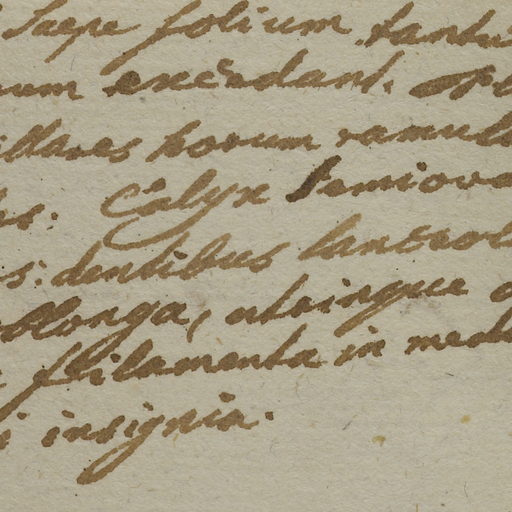 saepe folium tantu
um excedant.
illares horum ramul
es. Calyx semiova
s: dentibus lanceol
oblonga, utrinque o
filamenta in med
i insignia.